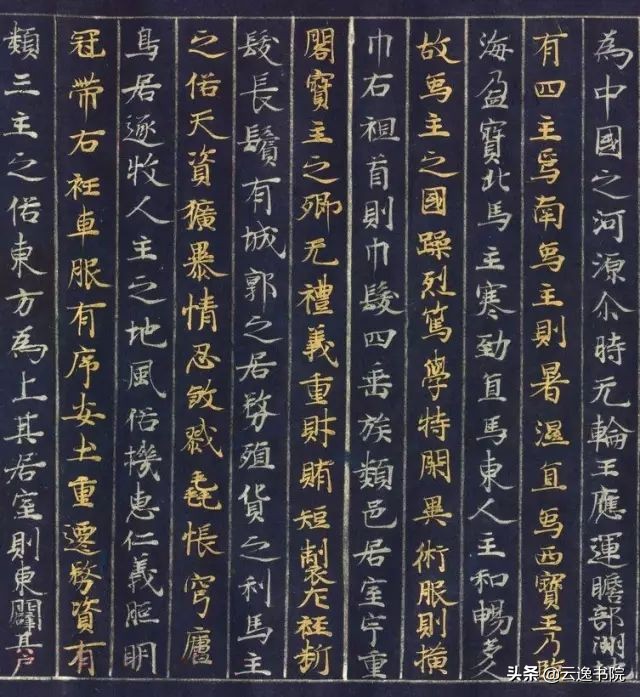 為中國之河源尒時无輪王應運瞻部洲
有四主焉南象主則暑濕宜象西寶主乃臨
海盈寶北馬主寒勁宜馬東人主和暢多
故象主之國躁烈篤學特閑異術服則橫
巾右袒首則巾髻四垂族類邑居室宇重
閣寶主之鄉无禮義重財賄短製左衽斷
髮長鬚有城郭之居務殖貨之利馬主
之俗天資獷暴情忍煞戮毳帳穹廬
鳥居逐牧人主之地風俗機惠仁義照明
冠帶右衽車服有序安土重遷務資有
類三主之俗東方為上其居室則東闢其戶
头条 @云逸书院